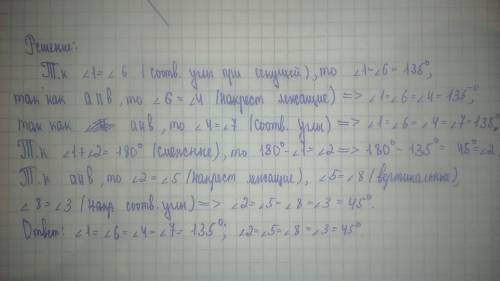 Решение:
Т.к ∠1=∠6 (соотв. углы при секущей), то ∠1=∠6=135°,
так как a∥в, то ∠6=∠4 (накрест лежащие) => ∠1=∠6=∠4=135°,
так как a∥в, то ∠4=∠7 (соотв. углы) => ∠1=∠6=∠4=∠7=135°
Т.к ∠1+∠2=180° (смежные), то 180°-∠1=∠2 => 180°-135°=45°=∠2
Т.к a∥в, то ∠2=∠5 (накрест лежащие), ∠5=∠8 (вертикальные),
∠8=∠3 (соотв. углы) => ∠2=∠5=∠8=∠3=45°.
Ответ: ∠1=∠6=∠4=∠7=135°; ∠2=∠5=∠8=∠3=45°.